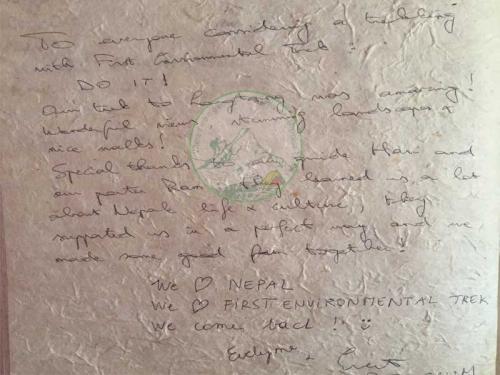 To everyone considering a trekking
with First Environmental Trek :
DO IT!
Our trek to Langtang was amazing!
Wonderful views, stunning landscapes &
nice walks!
Special thanks to our guide Hari and
our porter Ram, they learned us a lot
about Nepali life & culture, they
supported us in a perfect way and we
made some good fun together!
We ♡ NEPAL
We ♡ FIRST ENVIRONMENTAL TREK
We come back !! ☺
Evelyne &